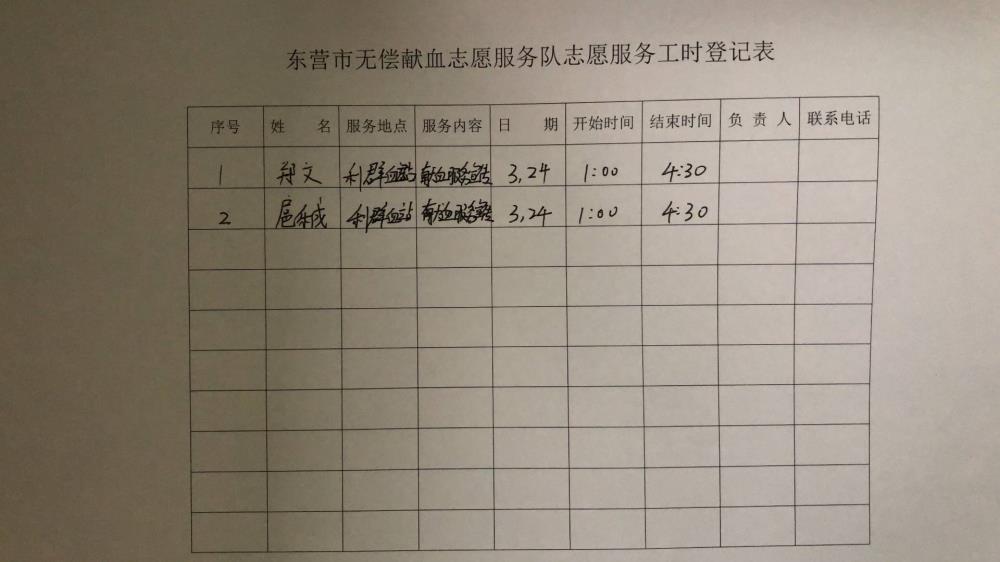 东营市无偿献血志愿服务队志愿服务工时登记表
序号 姓 名 服务地点 服务内容 日 期 开始时间 结束时间 负 责 人 联系电话
1 郑文 利群血站 献血服务 3,24 1:00 4:30
2 利群血站 献血服务 3,24 1:00 4:30